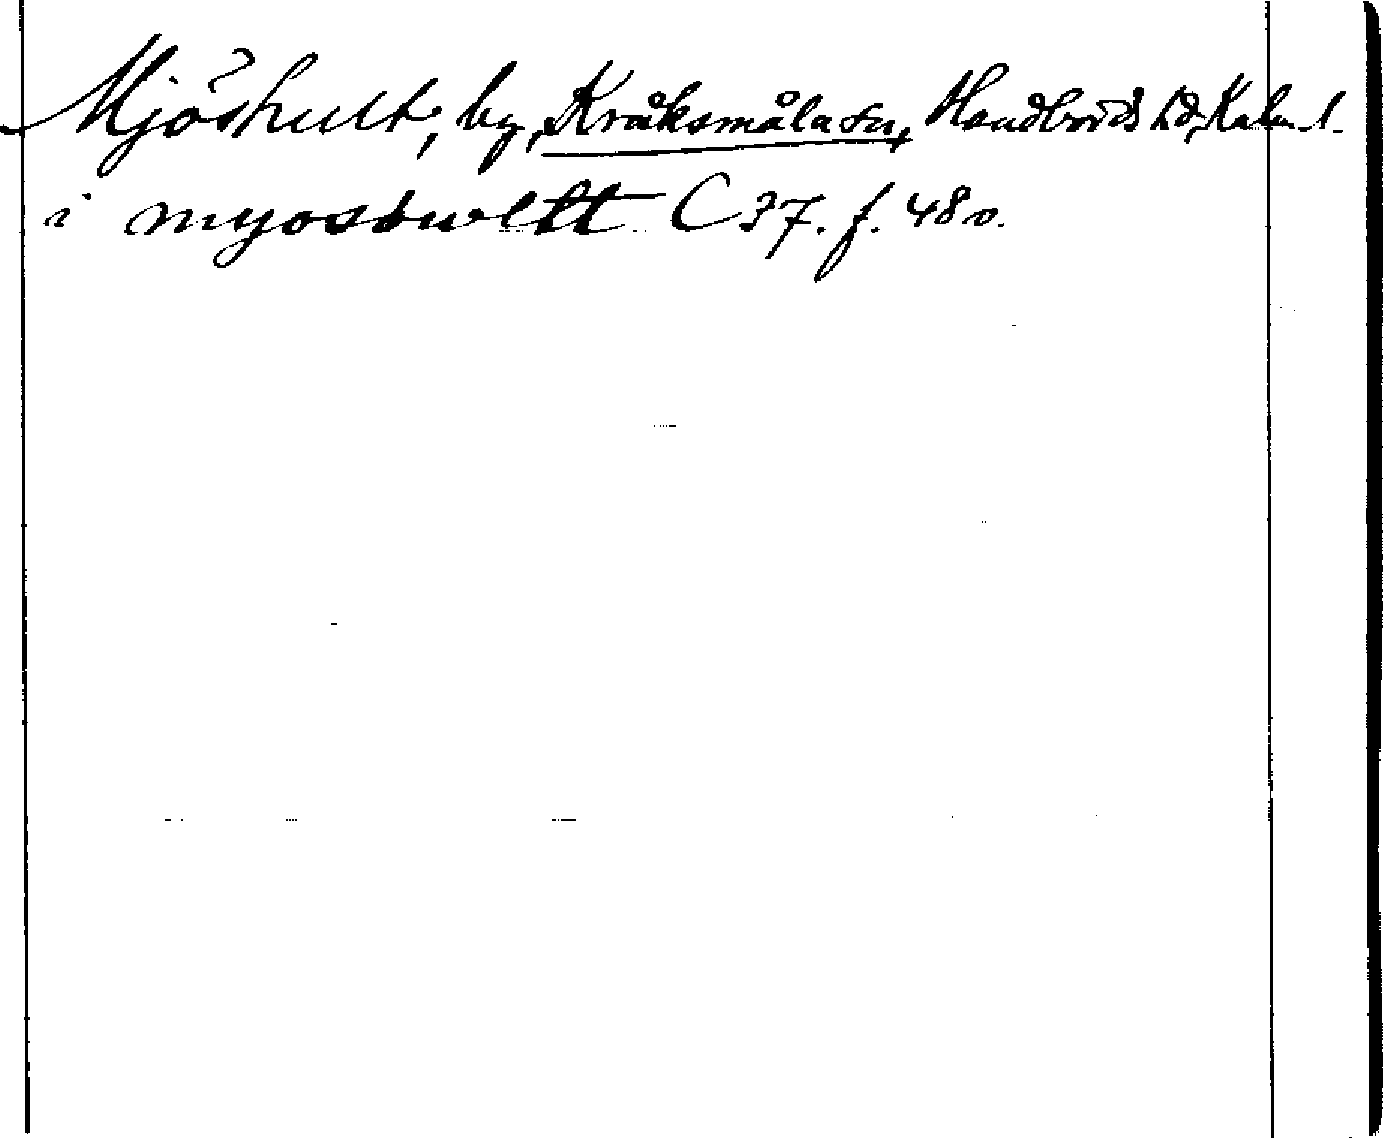 Mjöshult, by, Kråksmåla sn, Handbörds hd, Kalm. l.
i myoshwltt C 37. f. 48 v.